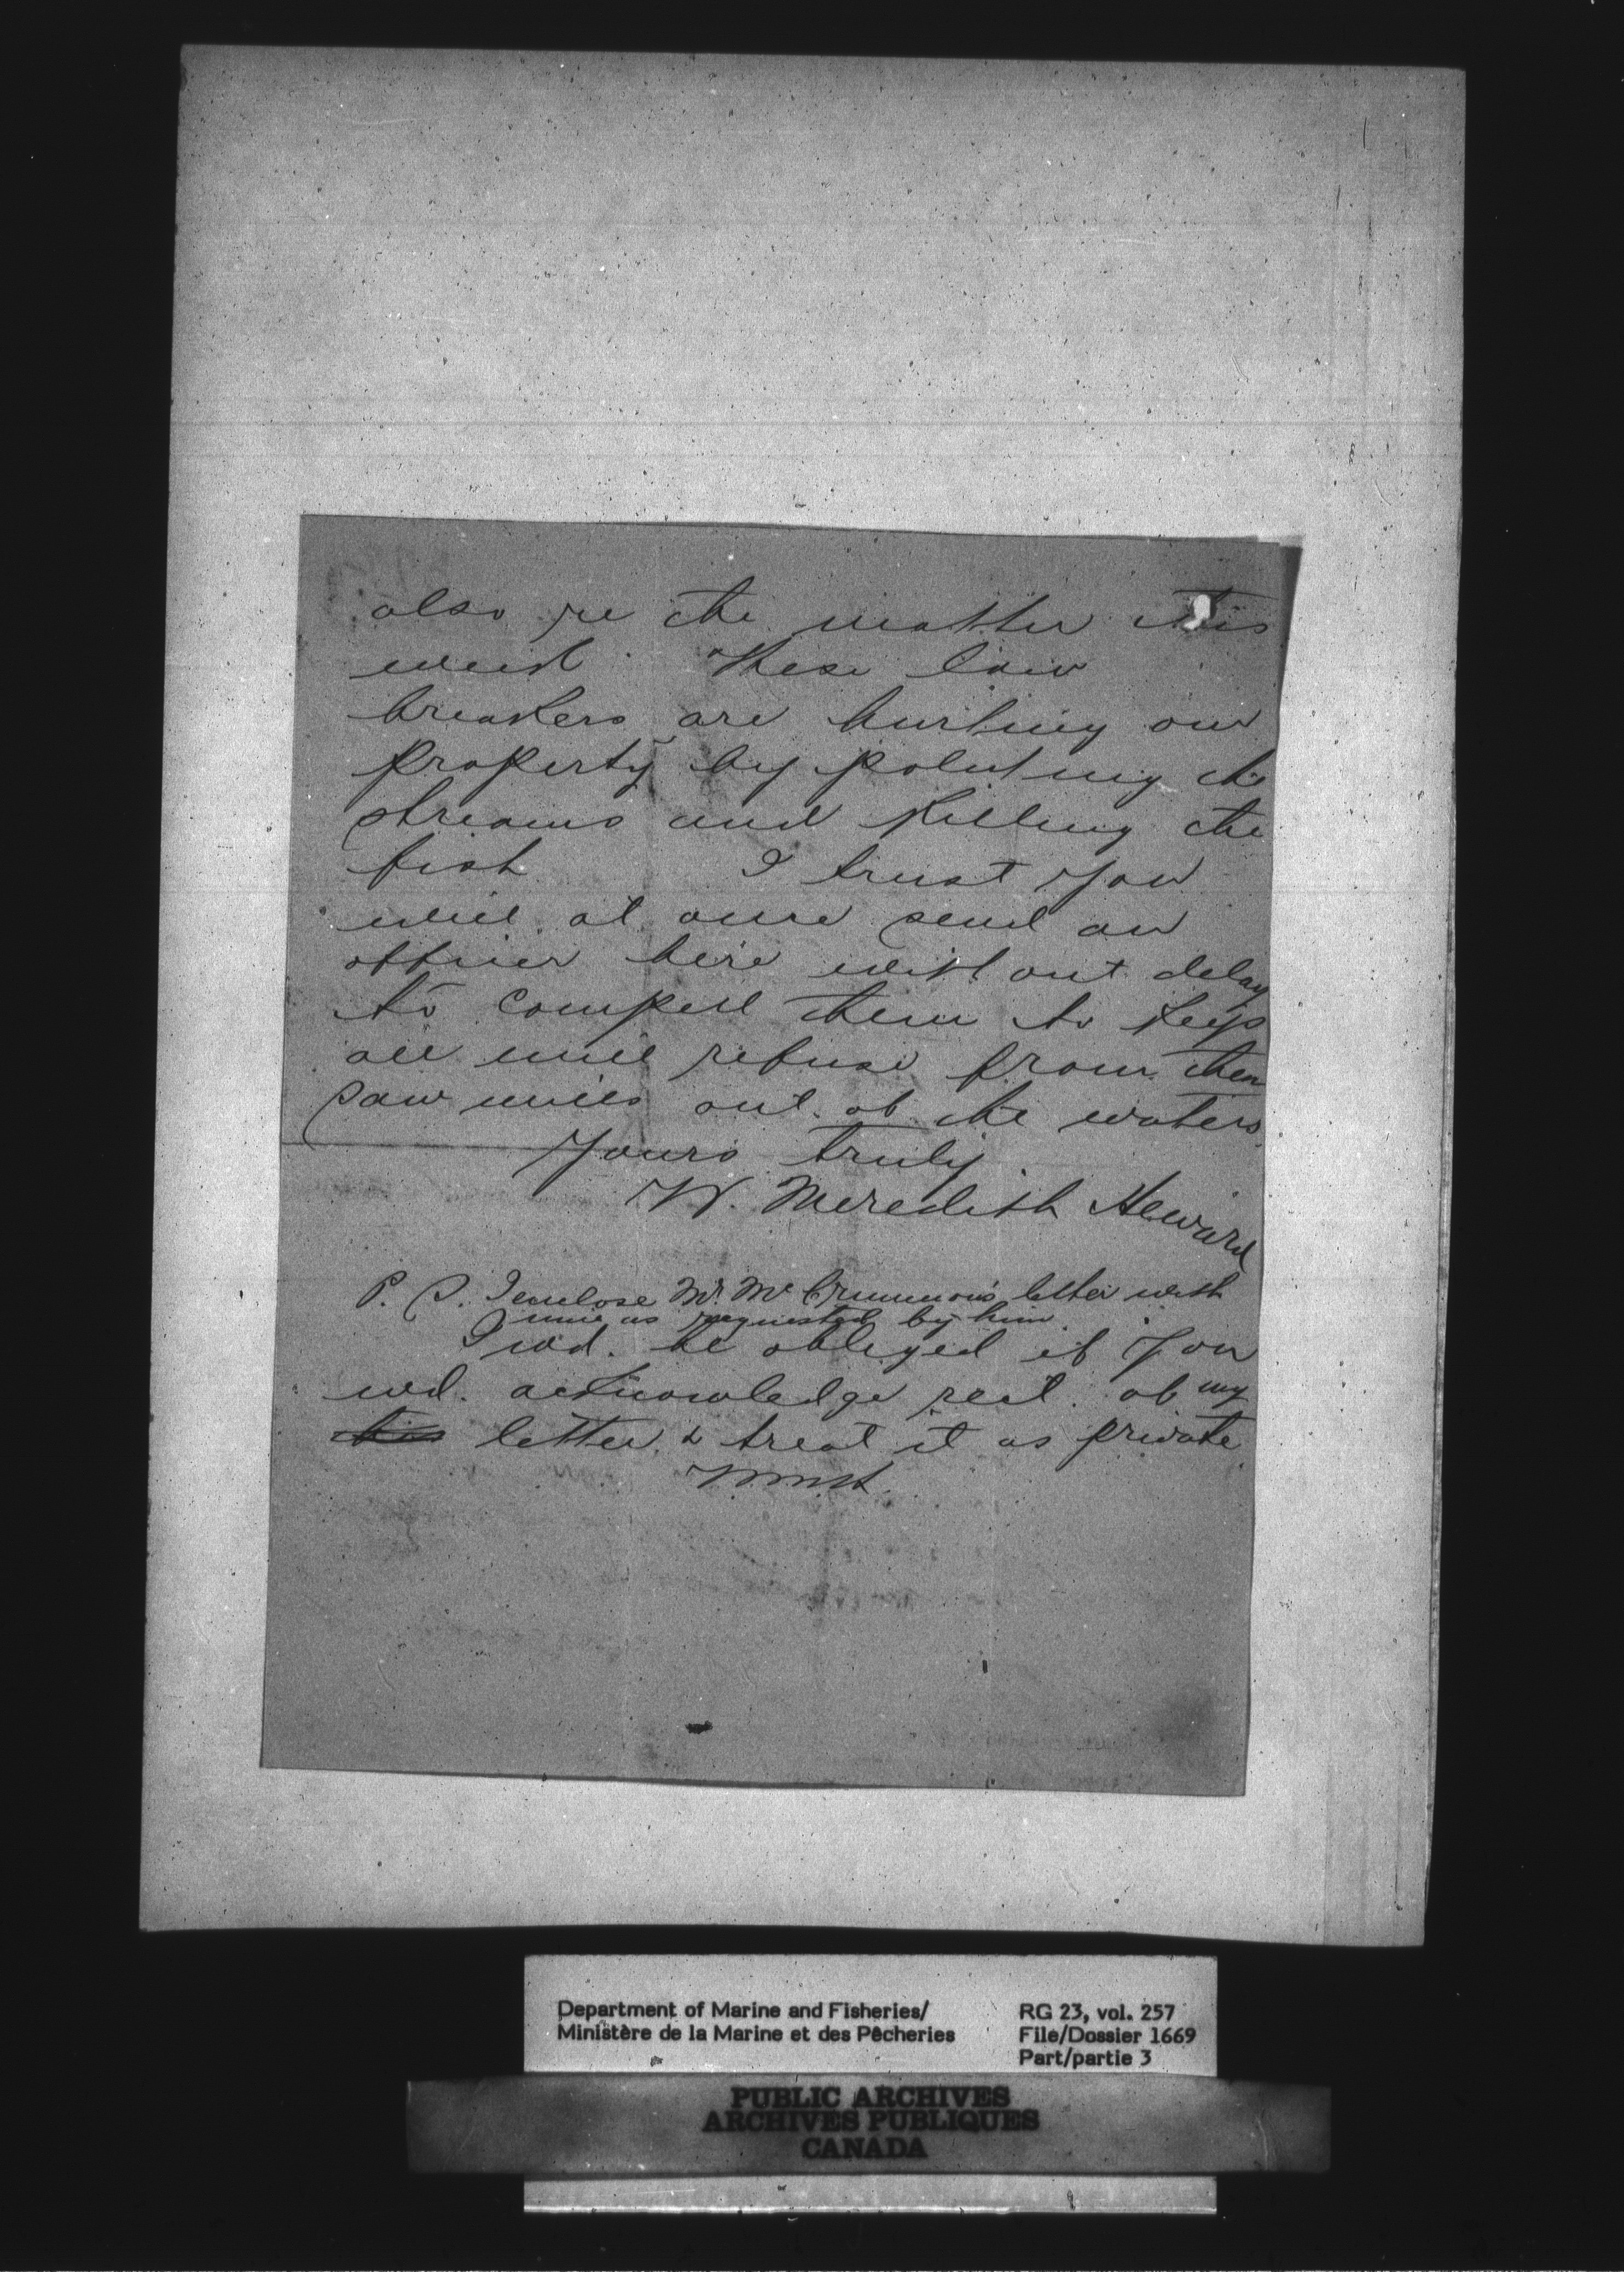 also re the matter this
week. These law
breakers are hurting our
property by poluting the
streams and killing the
fish I trust you
will at once send an
officer here without delay
to compell them to keep
all mill refuse from their
saw mills out of the waters.
Yours truly
W. Meredith Heward
P. S. I enclose Mr. Mc Crimmon's letter with
mine as requested by him.
I wd. be obliged if you
wd. acknowledge rect. of my
this letter & treat it as private
WMH.
Department of Marine and Fisheries/ RG 23, vol. 257
Ministère de la Marine et des Pêcheries File/Dossier 1669
Part/partie 3
PUBLIC ARCHIVES
ARCHIVES PUBLIQUES
CANADA